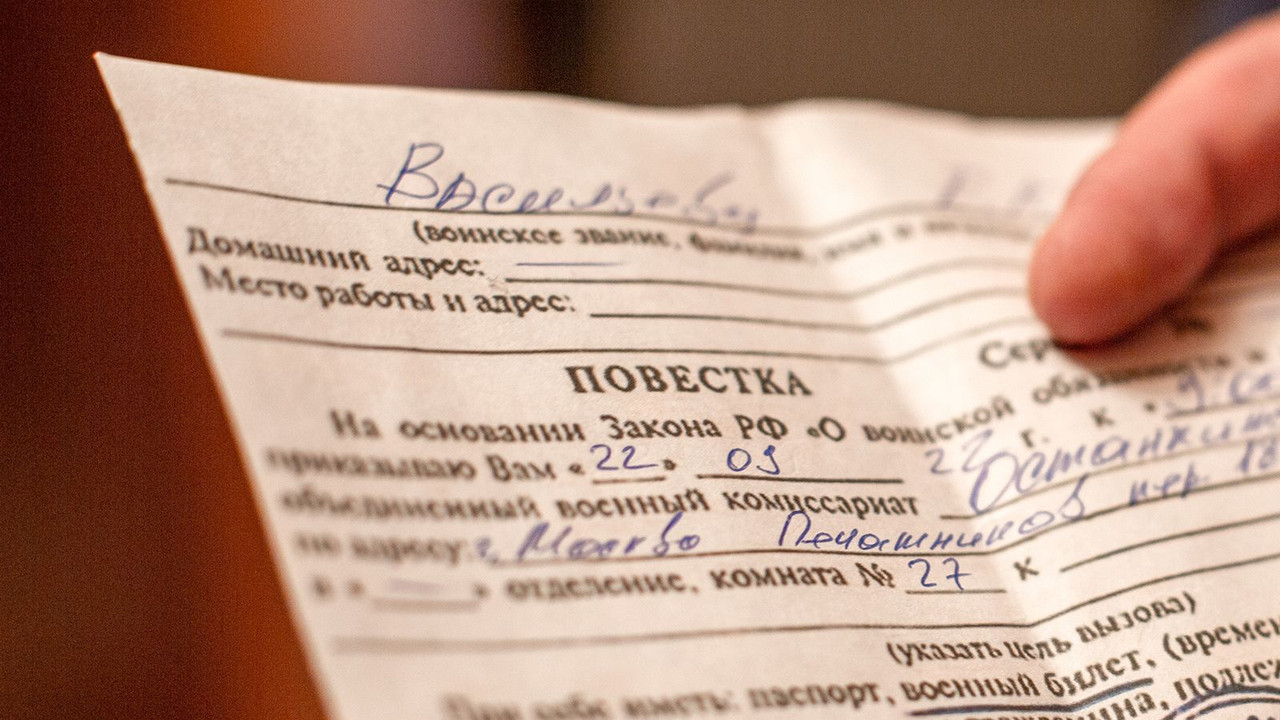 (воинское звание, фамилия, имя и
Домашний адрес:
Место работы и адрес:
Сер
ПОВЕСТКА
На основании Закона РФ «О воинской
приказываю Вам «22» 09 22 г. к «9
объединенный военный комиссариат Останкинс
по адресу: г. Москва Печатников пер. 18
в « — » отделение, комната № 27 к
(указать цель вызова)
При себе иметь: паспорт, военный билет, (времен